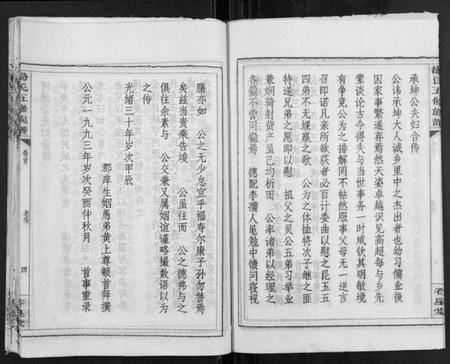 承坤公夫妇合传
公讳承坤大人诚乡里中之杰出者也幼习儒业后
因家事繁遂弃焉然天姿卓越识见高超每与乡先
辈谈论古今得失与当世事务一时咸钦其明敏境
有争竞公为之排解罔不帖然服事父母无一逆言
召即诺凡亲所欲获者必百计委曲以慰之昆玉五
四弟不无螟蠃之歌 公为之体恤将次子继之匪
特遂兄弟之愿即以慰 祖父之灵公五弟习举业
兼娴骑射赀产虽已均析而 公率诸弟以经理之
德配李孺人黾勉中馈问寝视
膳亦如 公之无少怠宜乎福寿尔康子孙勿替焉
矣兹当贵乘告竣 公虽往而 公之德弗与之
俱往余素与 公交兼又属姻谊谨略撮数语以为
之传
光绪三十年岁次甲辰
郡庠生姻愚弟黄上尊顿首拜撰
公元一九九三年岁次癸酉仲秋月 首事重录
汤氏五修族谱
卷首
老传
四